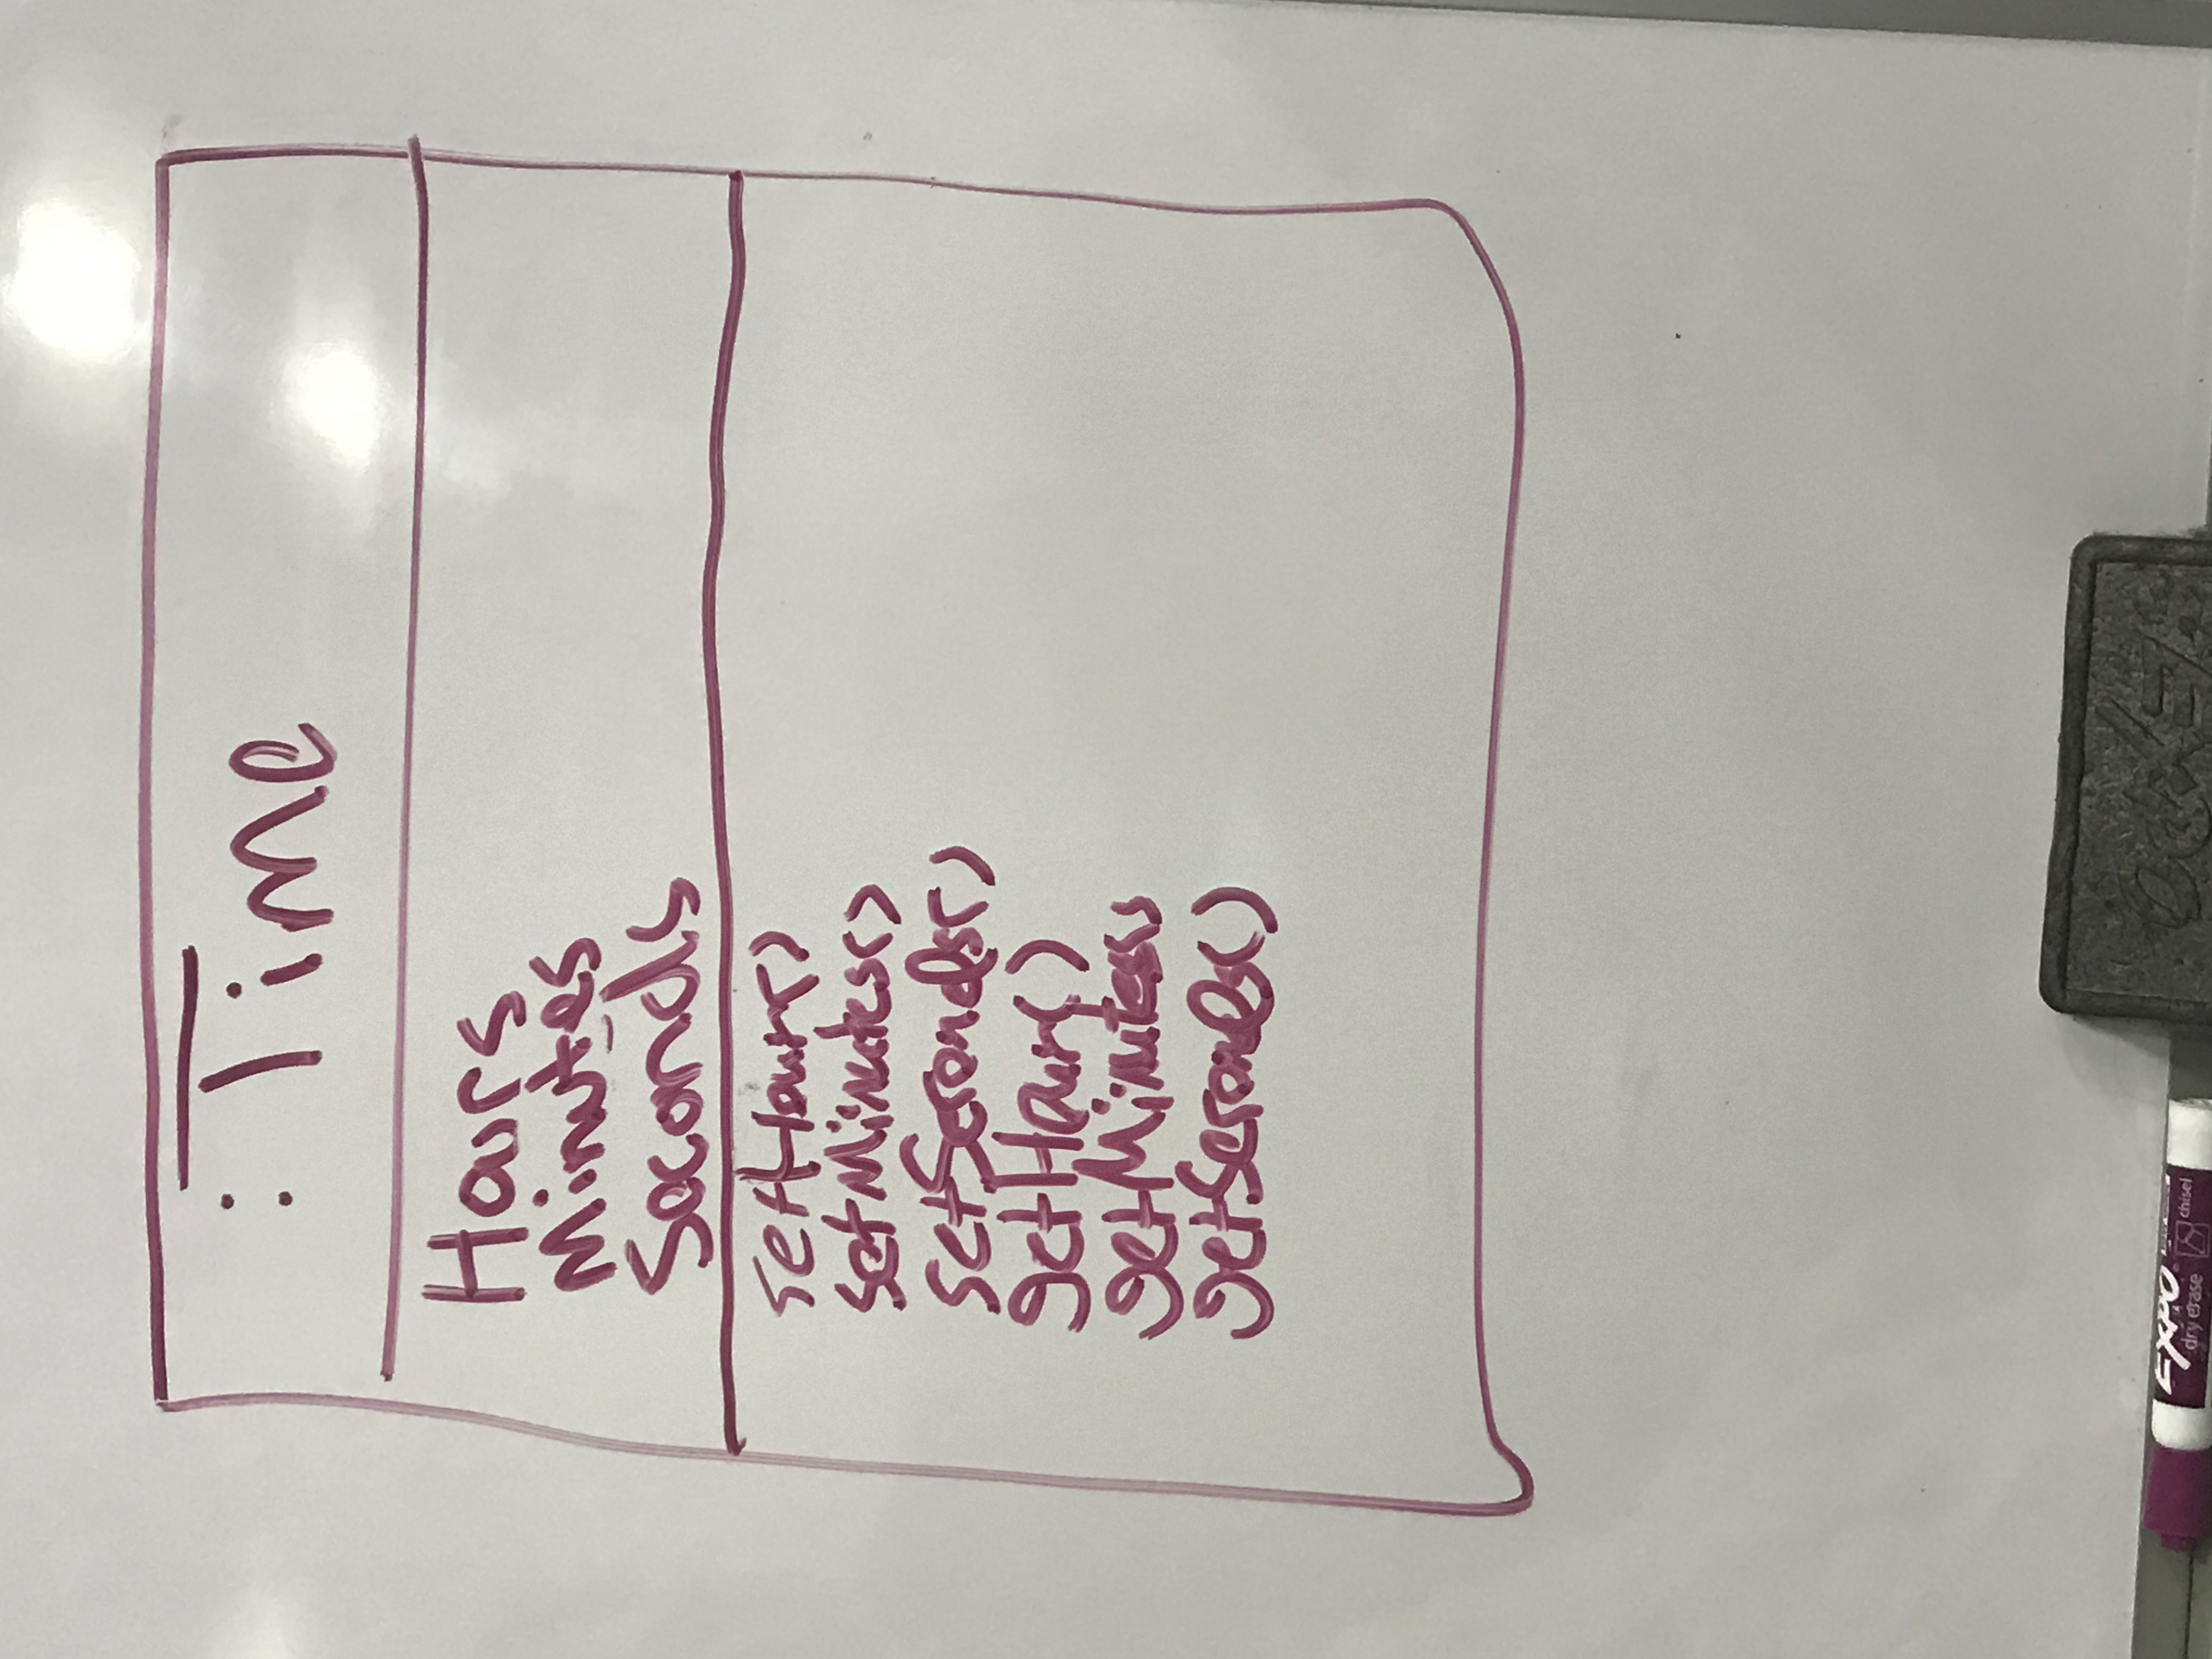 : Time
Hours
Minutes
Seconds
setHour()
setMinutes()
setSeconds()
getHour()
getMinutes()
getSeconds()
EXPO
dry erase
chisel